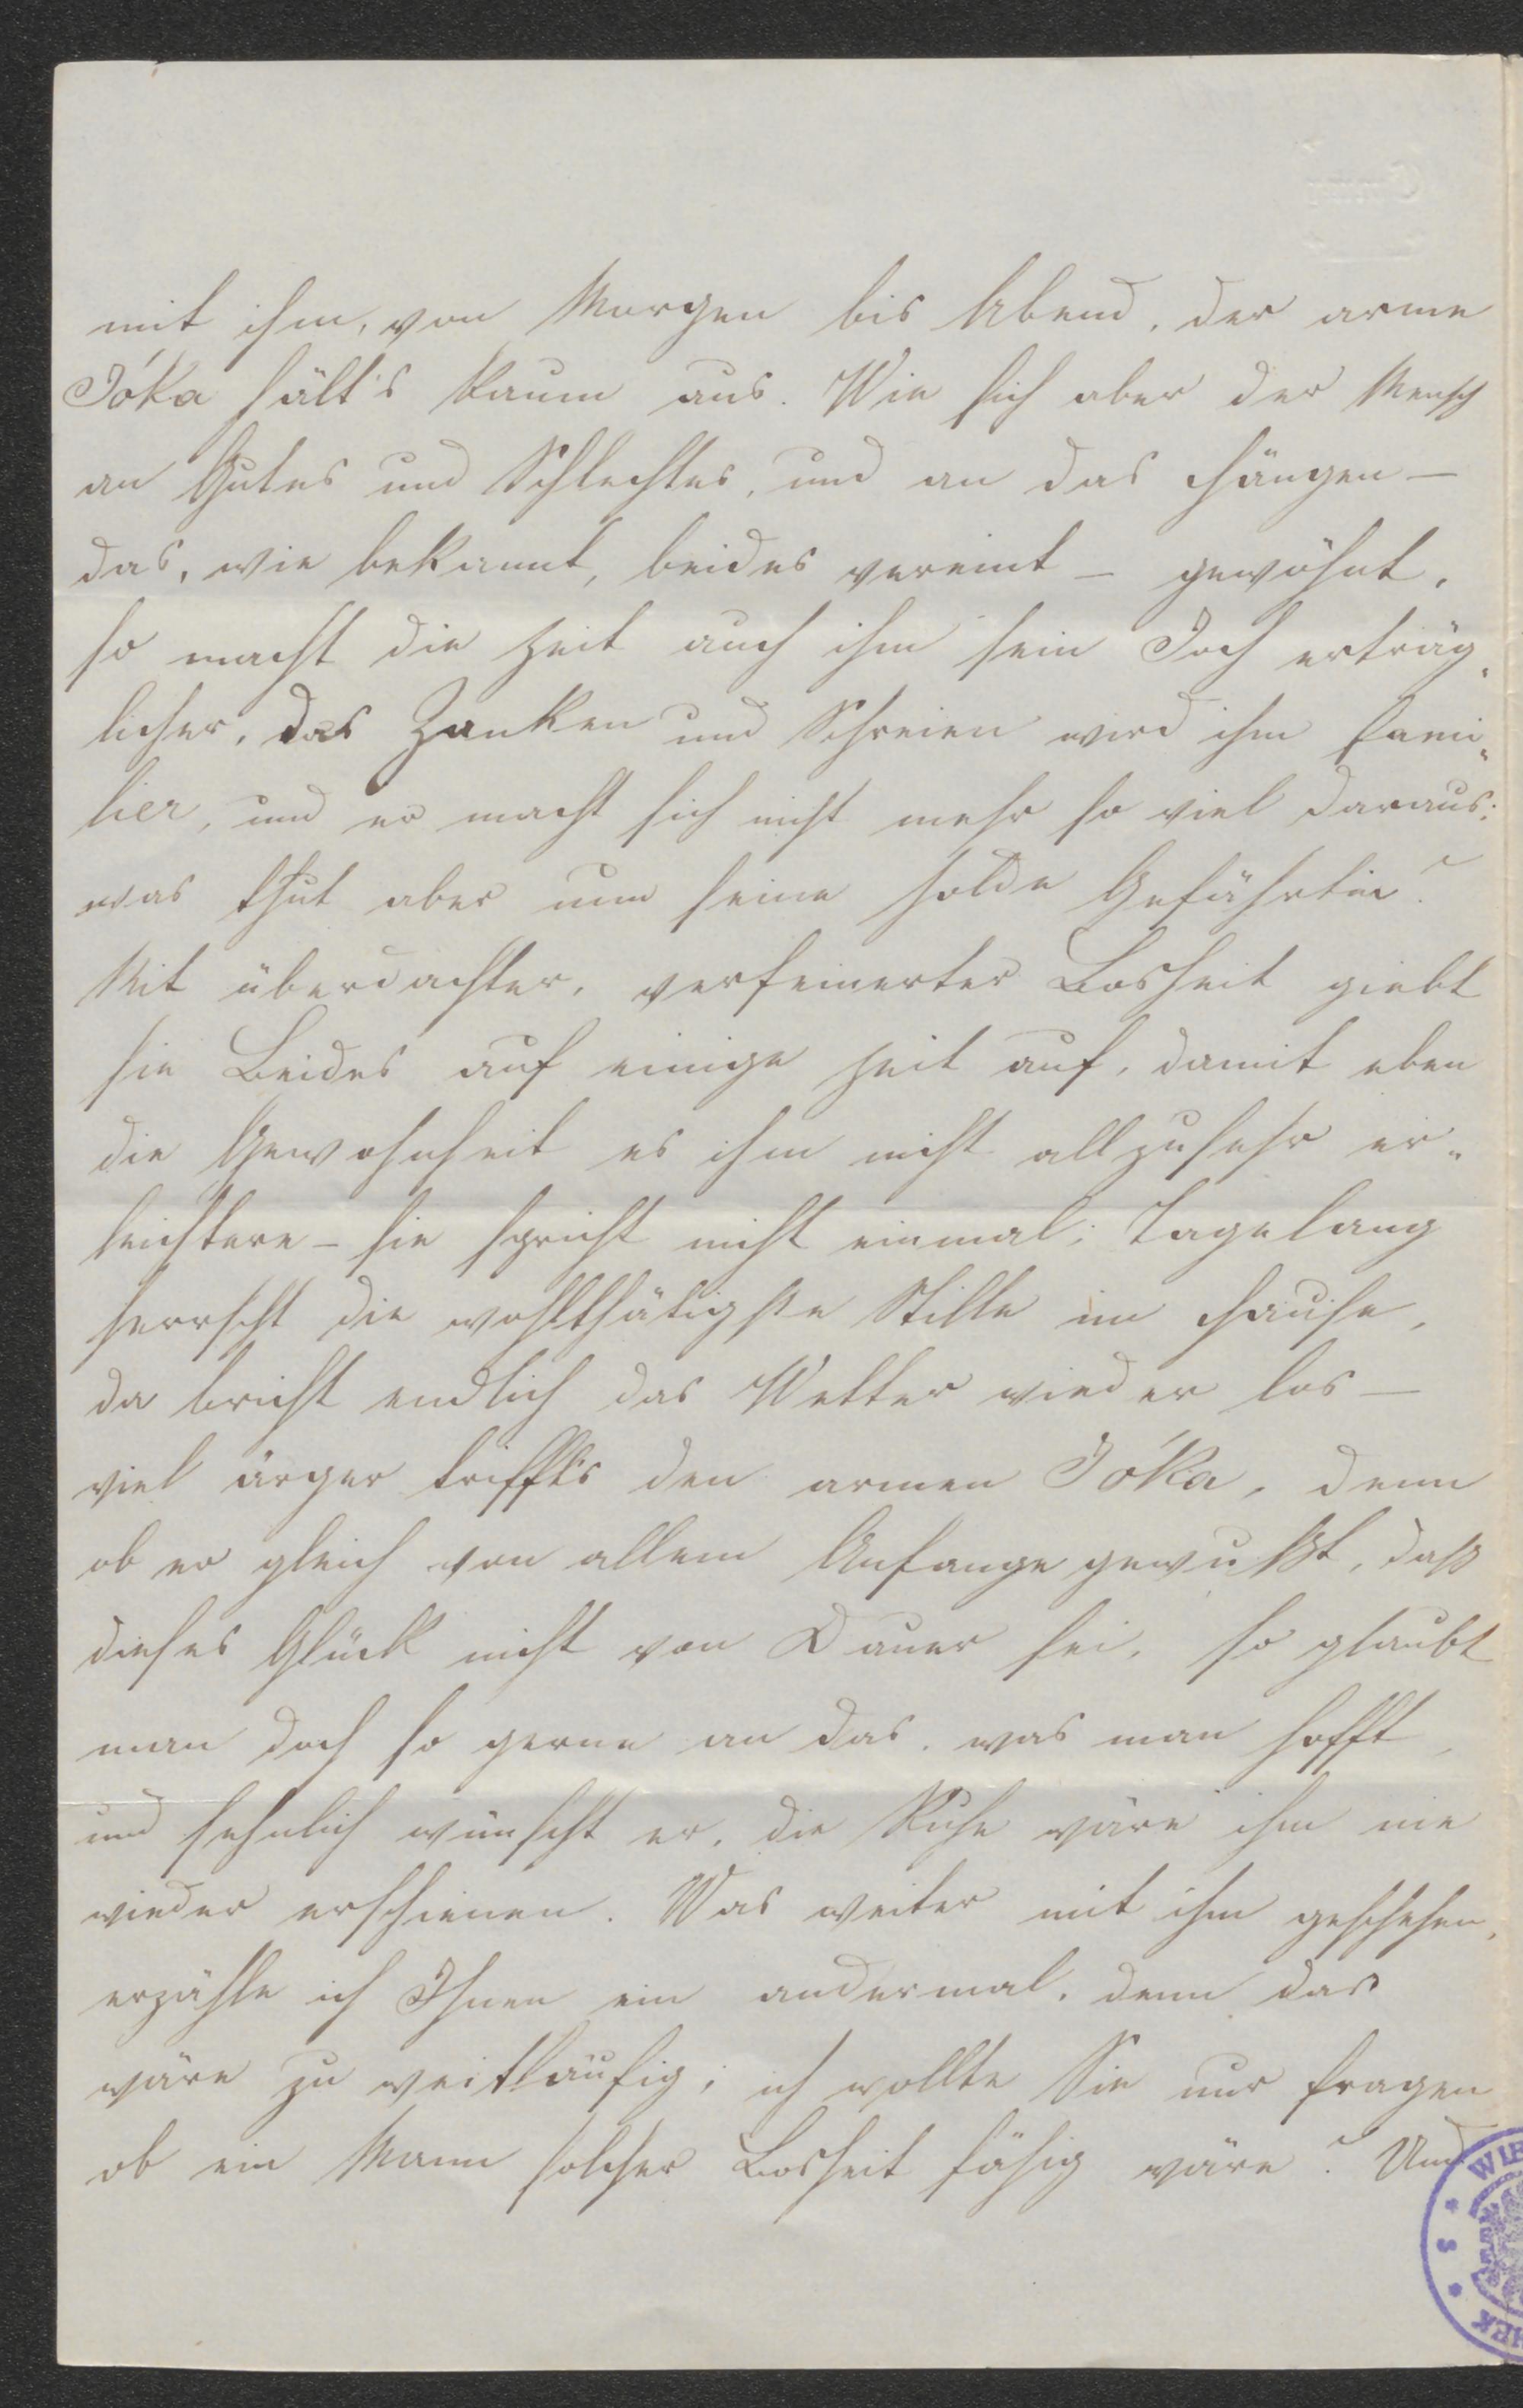 mit ihm, von Morgen bis Abend, der arme
Jóka hält's kaum aus. Wie sich aber der Mensch
an Gutes und Schlechtes, und an das Hängen –
das, wie bekannt, beides vereint – gewöhnt,
so macht die Zeit auch ihm sein Joch erträg„
licher, das Zanken und Schreien wird ihm fami„
lier, und er macht sich nicht mehr so viel daraus;
was thut aber nun seine holde Gefährtin?
Mit überdachter, verfeinerter Bosheit giebt
sie Beides auf einige Zeit auf, damit eben
die Gewohnheit es ihm nicht allzusehr er„
leichtere – sie spricht nicht einmal; Tagelang
herrscht die wohlthätigste Stille im Hause,
da bricht endlich das Wetter wieder los –
viel ärger trifft's den armen Jóka, denn
ob er gleich von allem Anfange gewußt, daß
dieses Glück nicht von Dauer sei, so glaubt
man doch so gerne an das, was man hofft,
und sehnlich wünscht er, die Ruhe wäre ihm nie
wieder erschienen. Was weiter mit ihm geschehen,
erzähle ich Ihnen ein andermal, denn das
wäre zu weitläufig; ich wollte Sie nur fragen
ob ein Mann solcher Bosheit fähig wäre? Und